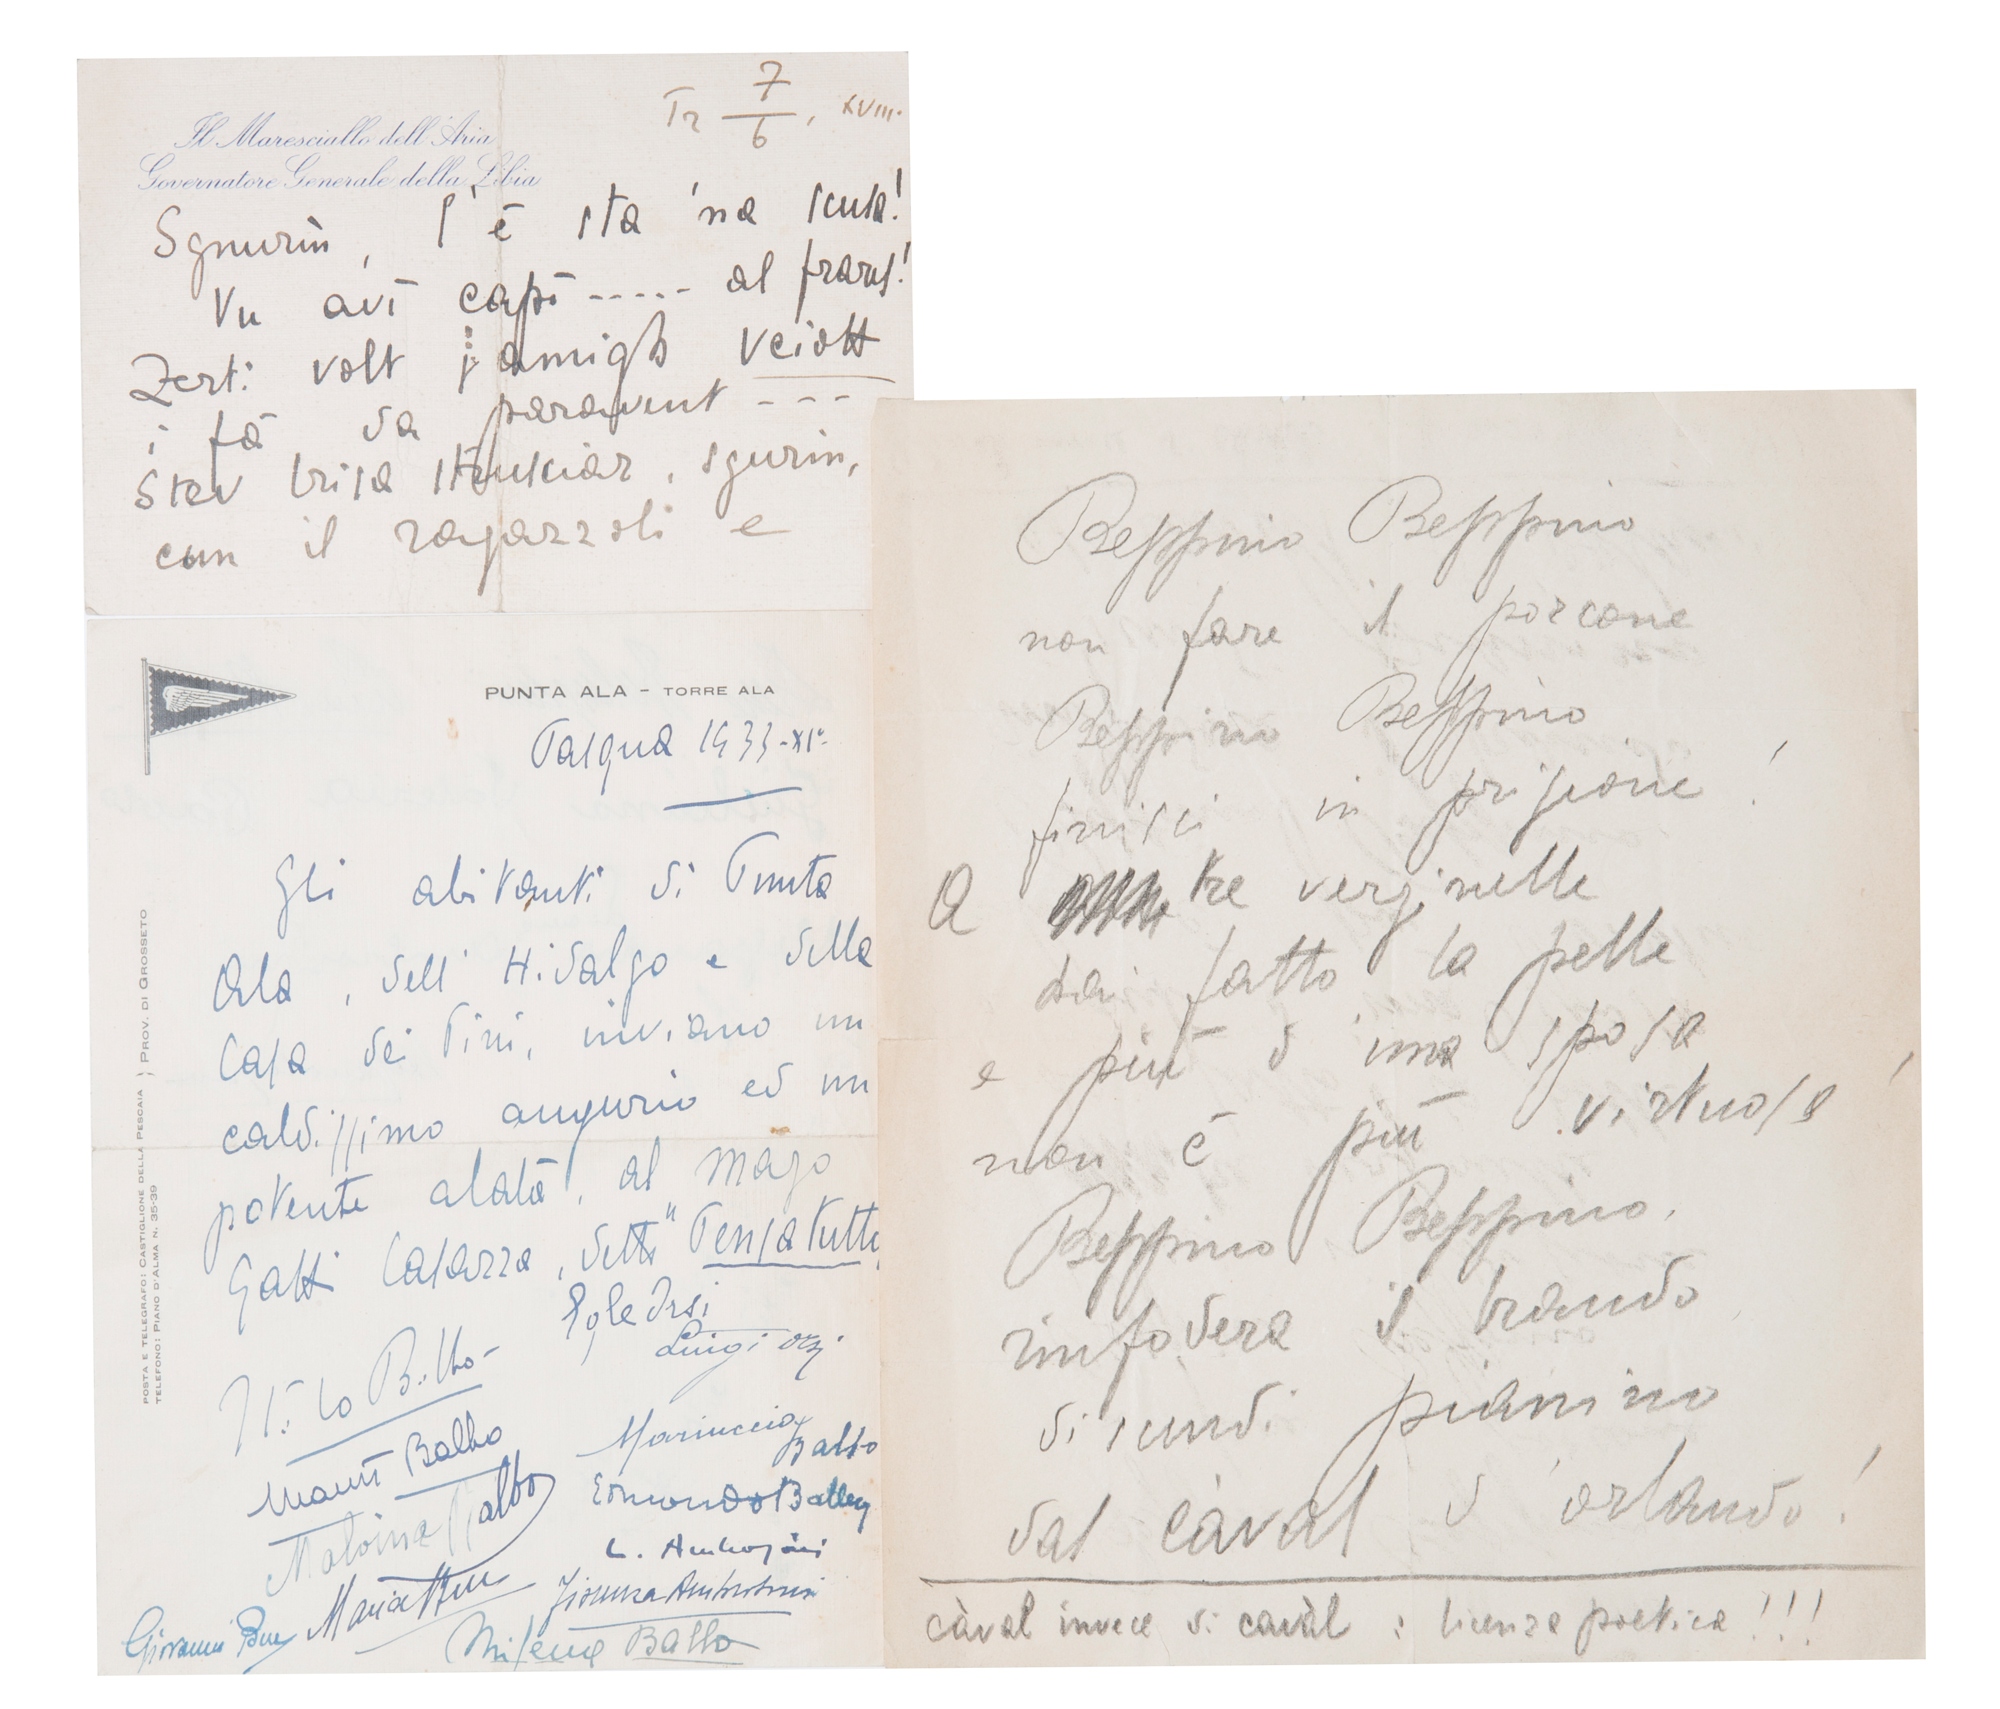 Tr 7/6, XVIII.
Il Maresciallo dell'Aria
Governatore Generale della Libia
Sgnurin, l'è sta 'na scusa!
Vu avì capì ----- al frars!
Zerti volt i amigh veiott
i fà da paravent ---
Stev brisa strusciar, sgurin,
cun il ragazzoli e
PUNTA ALA - TORRE ALA
Pasqua 1933-XI°-
POSTA E TELEGRAFO: CASTIGLIONE DELLA PESCAIA } PROV. DI GROSSETO
TELEFONO: PIANO D'ALMA N. 35-39
Gli abitanti di Punta
Ala, dell'Hidalgo e della
Casa dei Pini, inviano un
caldissimo augurio ed un
potente alalà, al mago
Gatti Casazza, detto "Pensatutto
Egle Orsi
Luigi Orsi
Italo Balbo-
Manù Balbo
Mariuccia
Balbo
Malvina Balbo
Edmondo Balbo
Maria
Fiorenza
Giovanni
Milena Balbo
Beppino Beppino
non fare il porcone
Beppino Beppino
finisci in prigione!
A tre verginelle
hai fatto la pelle
e più d'una sposa
non è più virtuosa!
Beppino Beppino,
rinfodera il brando
discendi pianino
dal càval d'orlando!
càval invece di cavàl : licenza poetica!!!